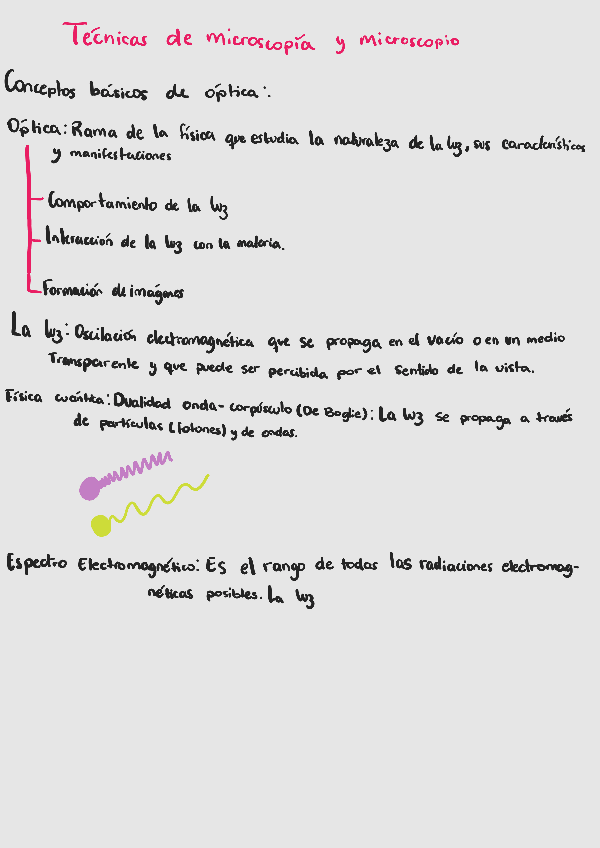 Técnicas de microscopía y microscopio
Conceptos básicos de óptica:
Óptica: Rama de la física que estudia la naturaleza de la luz, sus características
y manifestaciones
Comportamiento de la luz
Interacción de la luz con la materia.
Formación de imágenes
La luz: Oscilación electromagnética que se propaga en el vacío o en un medio
transparente y que puede ser percibida por el sentido de la vista.
Física cuántica: Dualidad onda-corpúsculo (De Boglie): La luz se propaga a través
de partículas (fotones) y de ondas.
Espectro Electromagnético: Es el rango de todas las radiaciones electromag-
néticas posibles. La luz